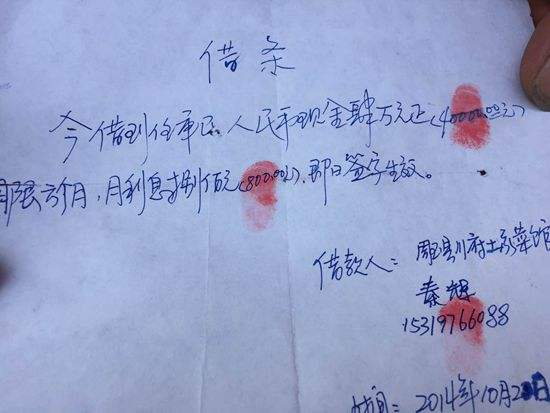 借条
今借到任军 人民币现金肆万元正(40000.00元)
期限六个月,月利息捌佰元(800.00元),即日签字生效。
借款人: 县川府土家菜馆
秦
15319766088
时间: 2014年10月2日